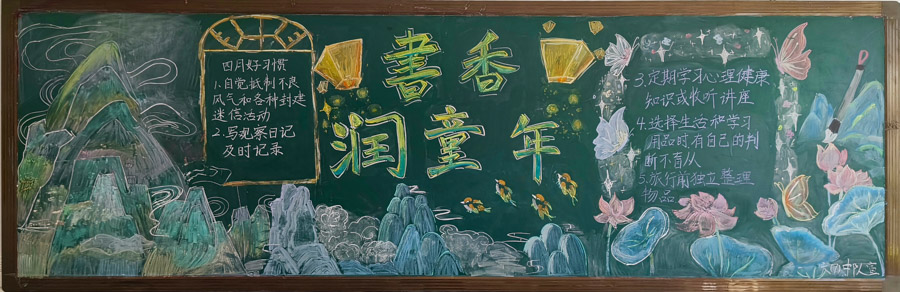 書香
润童年
四月好习惯
1.自觉抵制不良
风气和各种封建
迷信活动
2.写观察日记
及时记录
3.定期学习心理健康
知识或收听讲座
4.选择生活和学习
用品时有自己的判
断不盲从
5.旅行前独立整理
物品